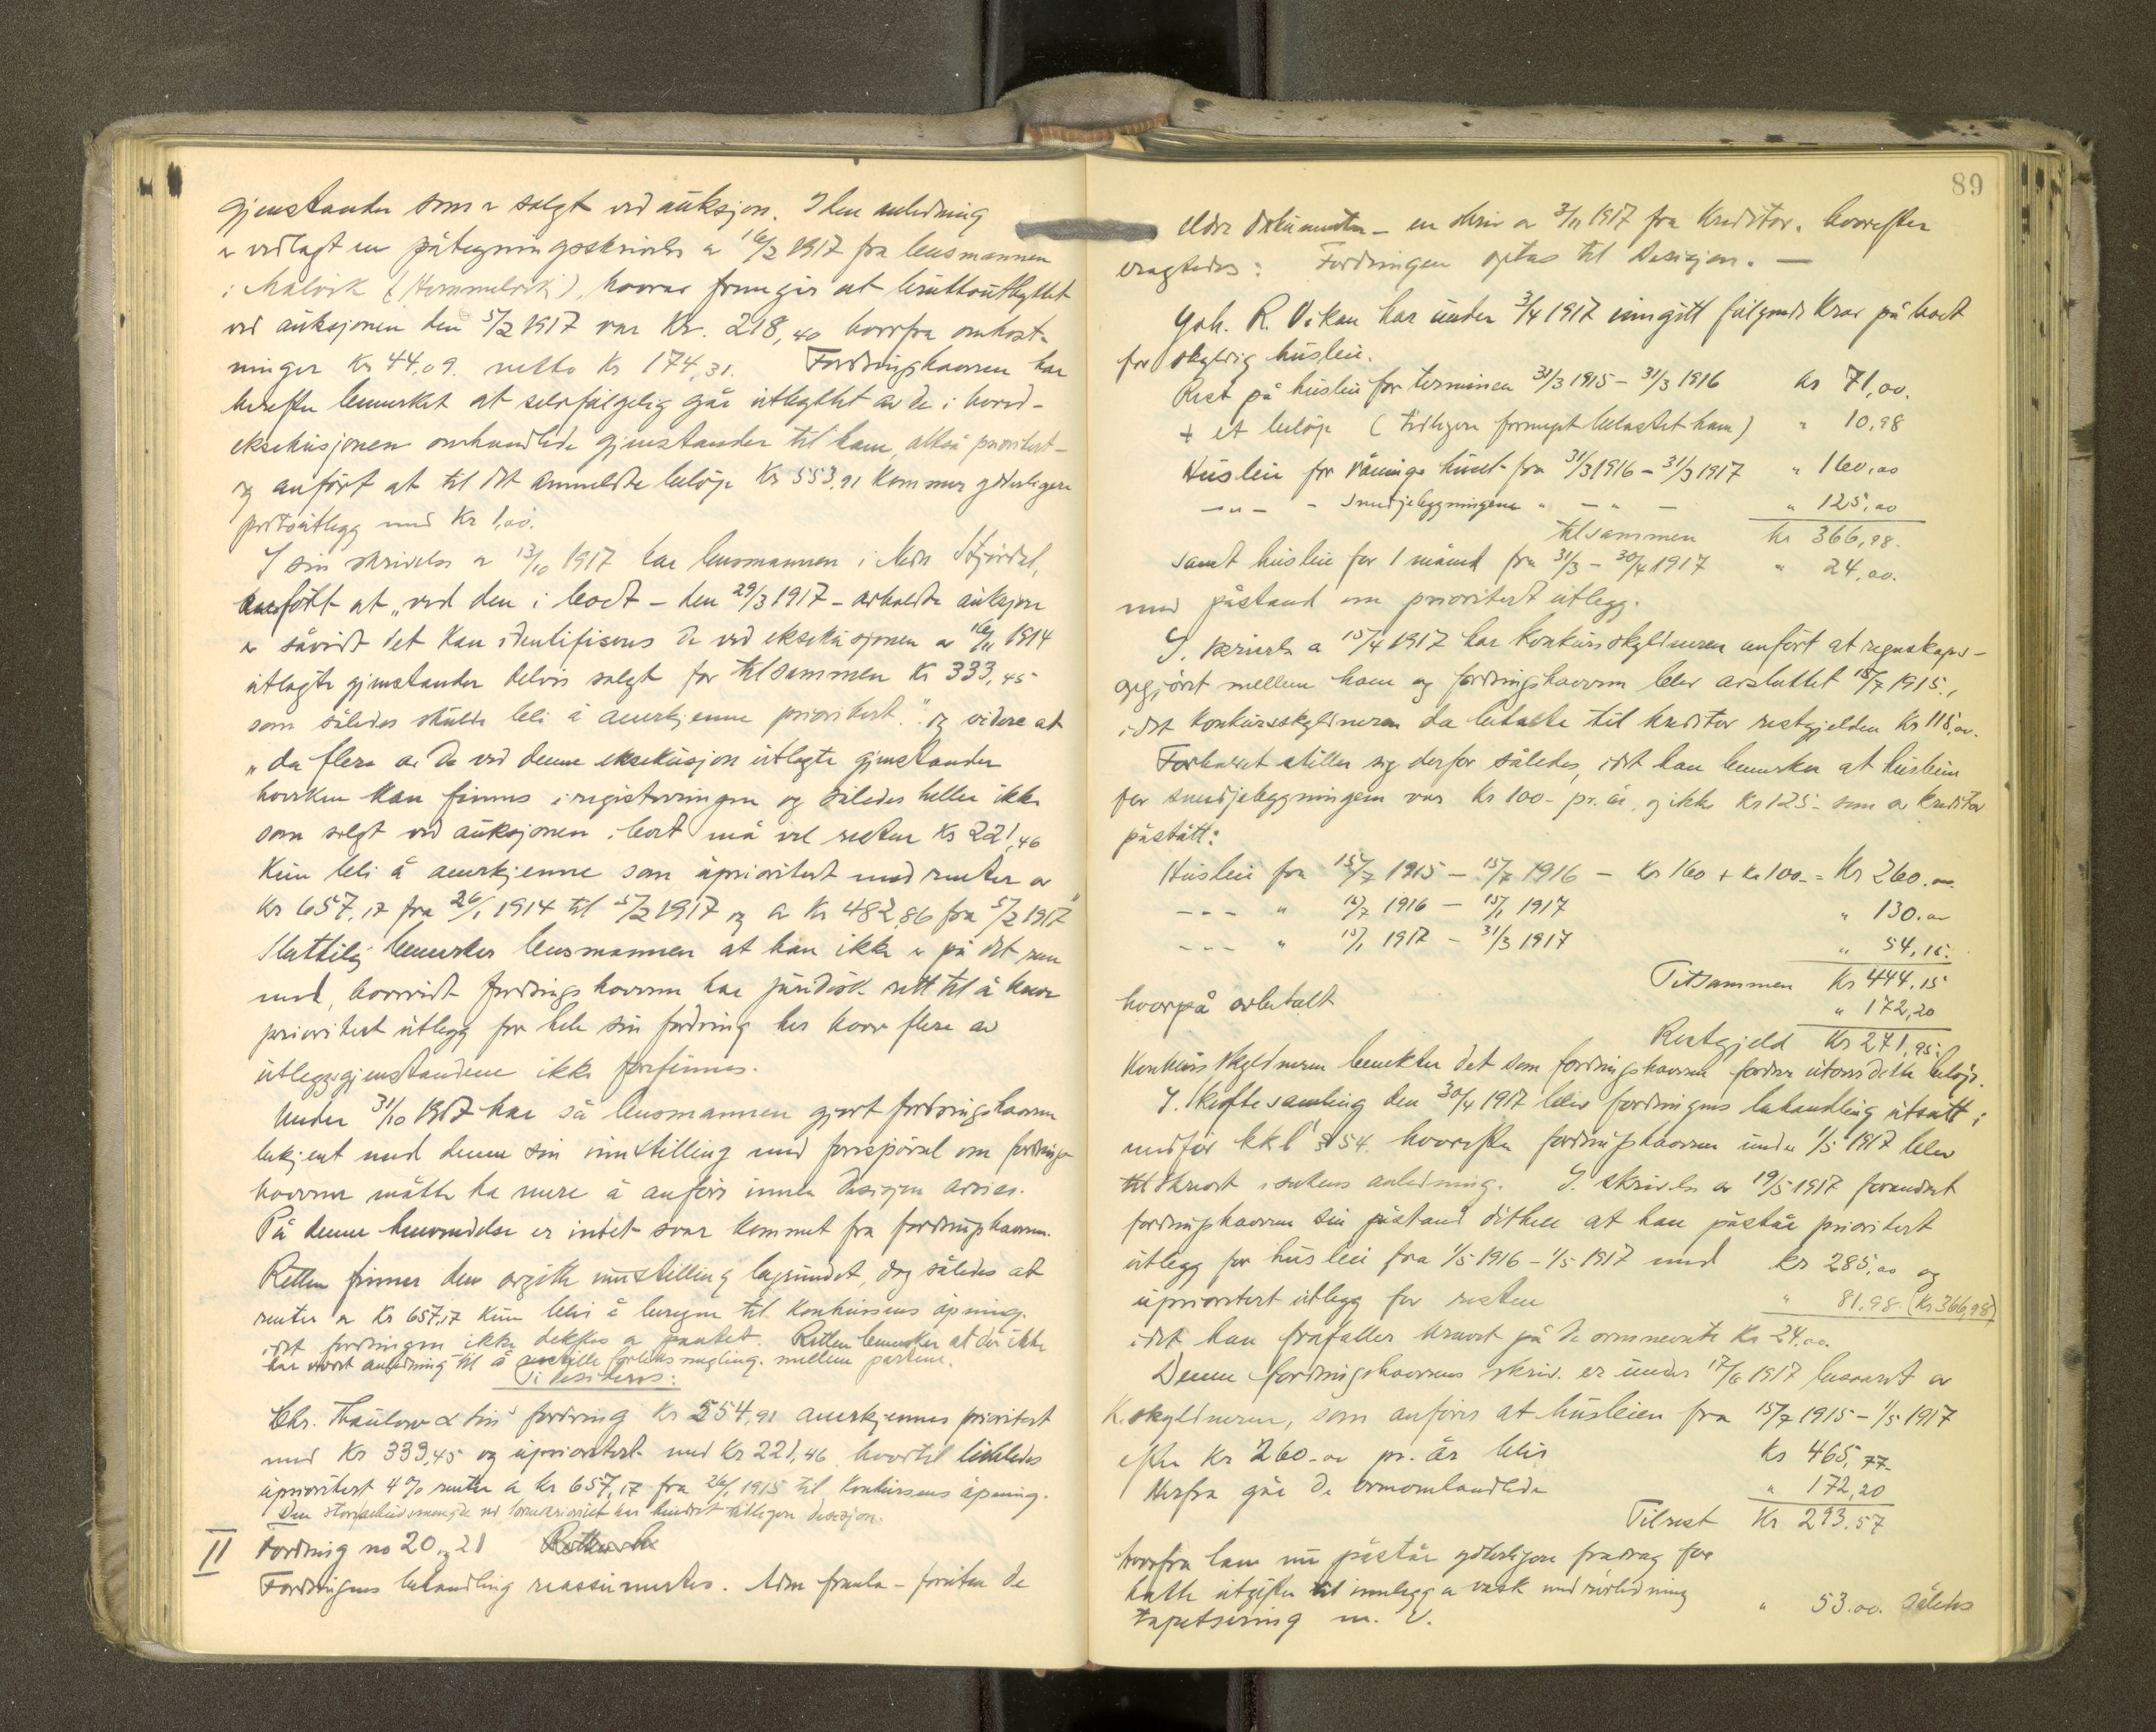 gjenstander som er solgt ved auksjon. I den anledning
er vedlagt en påtegningsskrivelse av 16/2 1917 fra lensmannen
i Malvik (Hommelvik), hvorav fremgår at bruttoutbyttet
ved auksjonen den 5/2 1917 var Kr. 218,40 hvorfra omkost-
ninger Kr 44,09. netto Kr 174,31. Fordringshaveren har
herefter bemerket at selvfølgelig går utbyttet av de i hoved-
eksekusjonen omhandlede gjenstander til ham, altså prioritert-
og anført at til det anmeldte beløp Kr 553,91 kommer ytterligere
portoutlegg med Kr 1,00.
I sin skrivelse av 13/10 1917 har lensmannen i Nedre Stjørdal,
anført at "ved den i boet - den 29/3 1917 - avholdte auksjon
er såvidt det kan identifiseres de ved eksekusjonen av 16/11 1914
utlagte gjenstander delvis solgt for tilsammen Kr 333,45
som således skulde bli å anerkjenne prioritert." og videre at
"da flere av de ved denne eksekusjon utlagte gjenstander
hverken kan finnes i registreringen og således heller ikke
som solgt ved auksjonen i boet må vel resten Kr 221,46
kun bli å anerkjenne som uprioritert med renter av
Kr 657,17 fra 26/1 1914 til 5/2 1917 og av Kr 482,86 fra 5/2 1917"
Slutteliq bemerker lensmannen at han ikke er på det rene
med, hvorvidt fordringshaveren har juridisk rett til å kreve
prioritert utlegg for hele sin fordring her hvor flere av
utleggsgjenstandene ikke forefinnes.
Under 31/10 1917 har så lensmannen gjort fordringshaveren
bekjent med denne sin innstilling med forespørsel om fordrings-
haveren måtte ha mere å anføre innen desisjon avsies.
På denne henvendelse er intet svar kommet fra fordringshaveren.
Retten finner den avgitte innstilling begrundet, dog således at
renter av Kr 657,17 kun blir å beregne til konkursens åpning.
idet fordringen ikke dekkes av pantet. Retten bemerker at der ikke
har vært anledning til å anstille forliksmegling mellem partene.
Ti desideres:
Chr. Thaulow & Søns fordring Kr 554,91 anerkjennes prioritert
med Kr 333,45 og uprioritert med Kr 221,46 hvortil
uprioritert 4% renter av Kr 657,17 fra 26/1 1915 til konkursens åpning.
Den store arbeidsmengde ved sorenskriveriet har hindret tidligere desisjon.
II Fordring no 20 og 21
Fordringens behandling reassumertes. Adm fremla - foruten de
89
eldre dokumenter - en skriv av 3/11 1917 fra kreditor. hvorefter
eragtedes: Fordringen optas til desisjon. -
Joh. R. Vikan har under 3/4 1917 inngitt følgende krav på boet
for skyldig husleie.
Rest på husleie for terminen 31/3 1915 - 31/3 1916 kr 71,00.
+ et beløp (tidligere belastet ham) " 10,98
Husleie for våningshuset fra 31/3 1916 - 31/3 1917 " 160,00
-"- - smedjebygningene " - " - " 125,00
tilsammen Kr 366,98.
samt husleie for 1 måned fra 31/3 - 30/4 1917 " 24,00.
med påstand om prioritert utlegg.
I skrivelse av 15/4 1917 har konkursskyldneren anført at regnskaps-
opgjøret mellem ham og fordringshaveren blev avsluttet 15/7 1915.,
idet konkursskyldneren da betalte til kreditor restgjelden Kr 115,00.
Forholdet stiller sig derfor således, idet han bemerker at husleien
for smedjebygningen var Kr 100.- pr. år, og ikke Kr 125.- som av kreditor
påstått:
Husleie fra 15/7 1915 - 15/7 1916 - Kr 160 + Kr 100.- = Kr 260.00.
--- " 15/7 1916 - 15/1 1917 " 130.00
--- " 15/1 1917 - 31/3 1917 " 54,15.
Tilsammen Kr 444,15
hvorpå avbetalt " 172,20
Restgjeld Kr 271,95.
Konkursskyldneren benekter det som fordringshaveren fordrer utover dette beløp.
I skiftesamling den 30/4 1917 blev fordringens behandling utsatt i
medfør kkl § 54. hvorefter fordringshaveren under 1/5 1917 blev
tilskrevet i sakens anledning. I skrivelse av 19/5 1917 forandret
fordringshaveren sin påstand dithen at han påstår prioritert
utlegg for husleie fra 1/5 1916 - 1/5 1917 med kr 285,00 og
uprioritert utlegg for resten " 81,98. (Kr 366,98)
idet han frafaller kravet på de ovennevnte Kr 24,00.
Denne fordringshaverens skriv. er under 17/6 1917 besvaret av
K.skyldneren, som anfører at husleien fra 15/7 1915 - 1/5 1917
efter Kr 260.00 pr. år blir Kr 465,77
Herfra går de ovenomhandlede " 172,20
Tilrest Kr 293,57
hvorfra han nu påstår ytterligere fradrag for
hatte utgifter til innlegg av vask med rørledning
tapetsering m. v. " 53.00. således